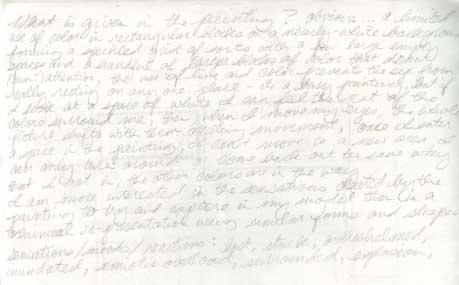 What is given in the painting? obvious... a limited
use of color in rectangular blocks on a nearly-white background
forming a speckled grid of sorts with a few large empty
spaces and a handful of larger blocks of color that
attention, the use of line and color prevents the eye from
really resting on any one place - its a busy painting, but if
I look at a space of white I can feel the rest of the
colors surround me, then when I move my eyes, the whole
picture shifts with them creating movement, once I enter
a space in the painting, I can't move to a new area, or
can only turn around come back out the same way
that I got in, the other colors are in the way
I am more interested in the sensations by the
painting to try and capture in my model than in a
representation using similar forms and shapes
sensations/moods/reactions: lost, stuck, overwhelmed,
inundated, semiotic overload, surrounded, explosion,